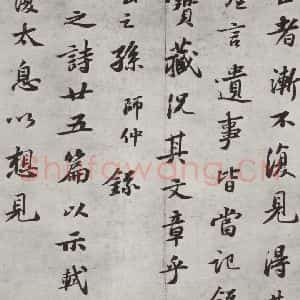 者漸不復見得其
言遺事皆當記錄
寶藏況其文章乎
之孫師仲錄
之詩廿五篇以示軾
復太息以想見
Shufawang.CN